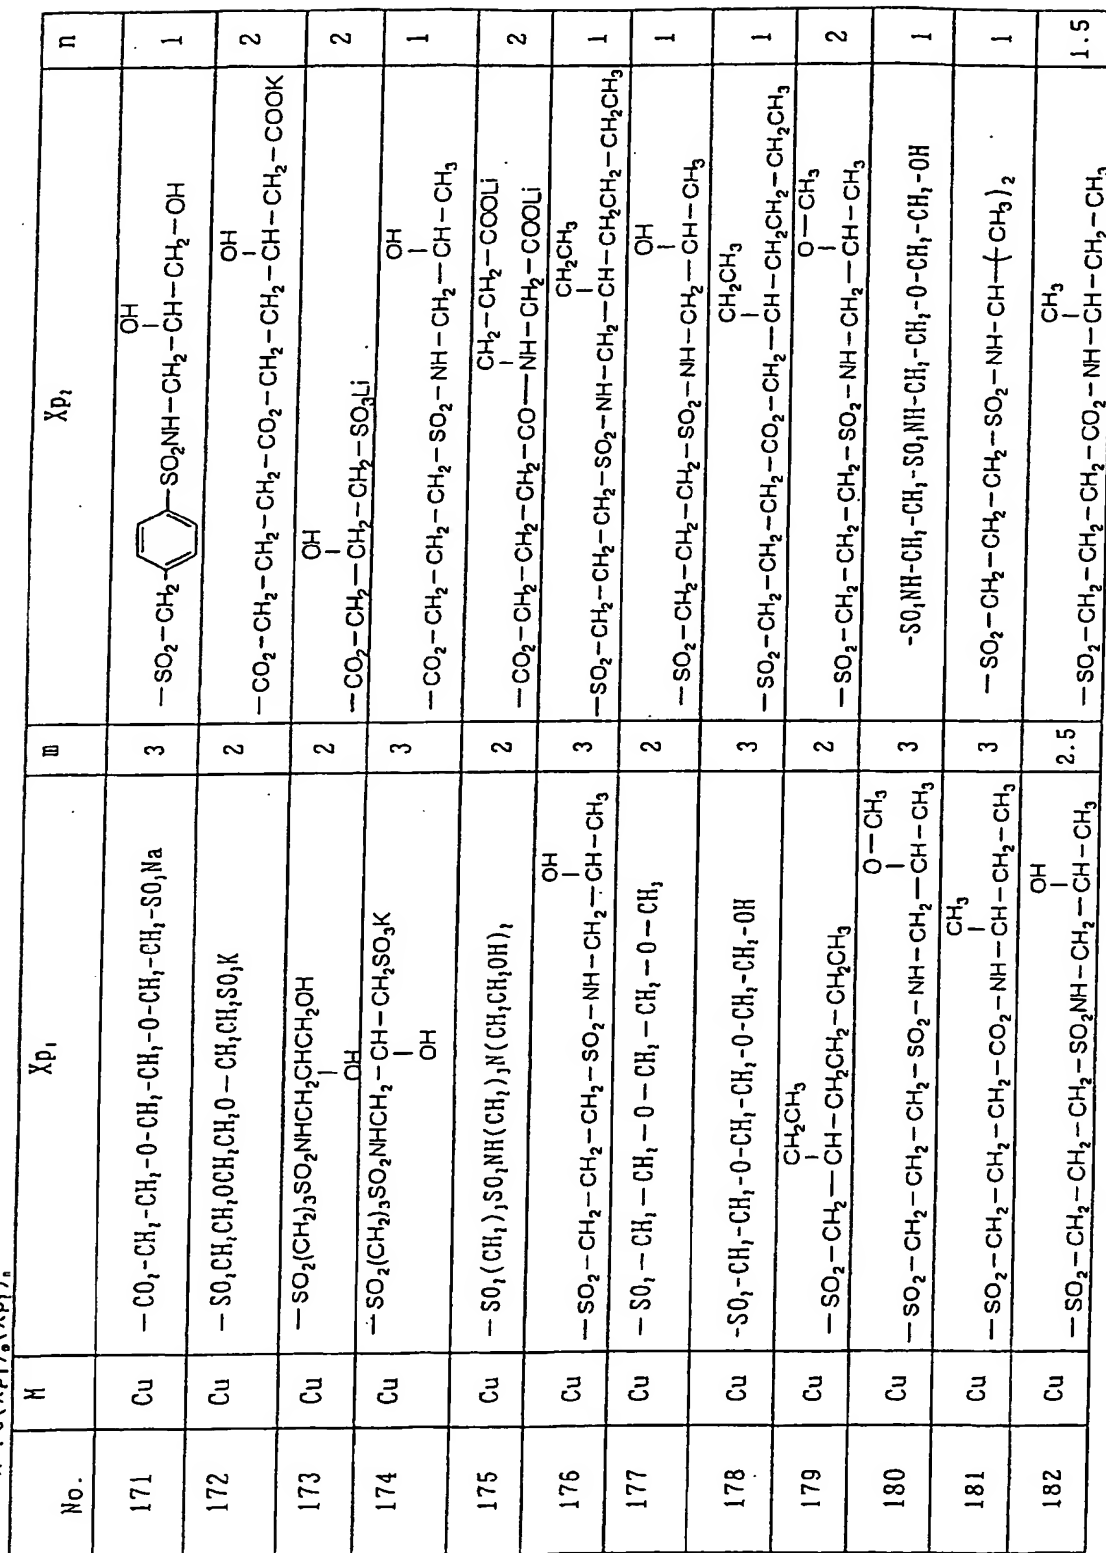 No. M Xp₁ m Xp₂ n
171 Cu —CO₂-CH₂-CH₂-O-CH₂-CH₂-O-CH₂-CH₂-SO₃Na 3 —SO₂—CH₂— —SO₂NH—CH₂—CH(OH)—CH₂—OH 1
172 Cu —SO₂CH₂CH₂OCH₂CH₂O—CH₂CH₂SO₃K 2 —CO₂—CH₂—CH₂—CH₂—CO₂—CH₂—CH₂—CH(OH)—CH₂—COOK 2
173 Cu —SO₂(CH₂)₃SO₂NHCH₂CH(OH)CH₂OH 2 —CO₂—CH₂—CH(OH)—CH₂—SO₃Li 2
174 Cu —SO₂(CH₂)₃SO₂NHCH₂—CH(OH)—CH₂SO₃K 3 —CO₂—CH₂—CH₂—CH₂—SO₂—NH—CH₂—CH(OH)—CH₃ 1
175 Cu —SO₂(CH₂)₃SO₂NH(CH₂)₃N(CH₂CH₂OH)₂ 2 —CO₂—CH₂—CH₂—CH₂—CO—NH—CH(CH₂—CH₂—COOLi)—CH₂—COOLi 2
176 Cu —SO₂—CH₂—CH₂—CH₂—SO₂—NH—CH₂—CH(OH)—CH₃ 3 —SO₂—CH₂—CH₂—CH₂—SO₂—NH—CH₂—CH(CH₂CH₃)—CH₂CH₂—CH₂CH₃ 1
177 Cu —SO₂—CH₂—CH₂—O—CH₂—CH₂—O—CH₃ 2 —SO₂—CH₂—CH₂—CH₂—SO₂—NH—CH₂—CH(OH)—CH₃ 1
178 Cu -SO₂-CH₂-CH₂-O-CH₂-CH₂-O-CH₂-CH₂-OH 3 —SO₂—CH₂—CH₂—CH₂—CO₂—CH₂—CH(CH₂CH₃)—CH₂CH₂—CH₂CH₃ 1
179 Cu —SO₂—CH₂—CH(CH₂CH₃)—CH₂CH₂—CH₂CH₃ 2 —SO₂—CH₂—CH₂—CH₂—SO₂—NH—CH₂—CH(O—CH₃)—CH₃ 2
180 Cu —SO₂—CH₂—CH₂—CH₂—SO₂—NH—CH₂—CH(O—CH₃)—CH₃ 3 -SO₂NH-CH₂-CH₂-SO₂NH-CH₂-CH₂-O-CH₂-CH₂-OH 1
181 Cu —SO₂—CH₂—CH₂—CH₂—CO₂—NH—CH(CH₃)—CH₂—CH₃ 3 —SO₂—CH₂—CH₂—CH₂—SO₂—NH—CH—(CH₃)₂ 1
182 Cu —SO₂—CH₂—CH₂—CH₂—SO₂NH—CH₂—CH(OH)—CH₃ 2.5 —SO₂—CH₂—CH₂—CH₂—CO₂—NH—CH(CH₃)—CH₂—CH₃ 1.5